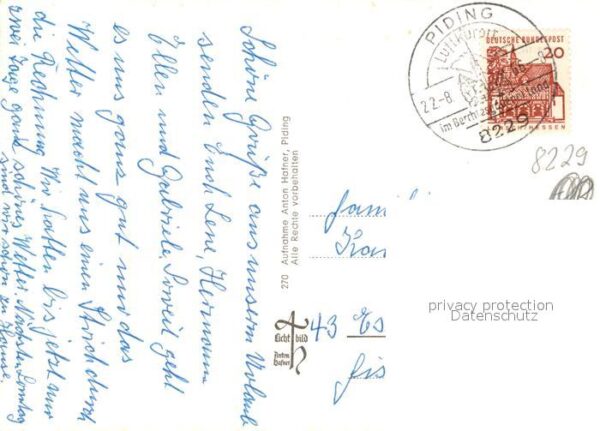 Schöne Grüße aus unserm Urlaub
senden Euch Lene, Hermann
Ellen und Gabriele. Soweit geht
es uns ganz gut nur das
Wetter macht uns einen Strich durch
die Rechnung. Wir hatten bis jetzt nur
zwei Tage ganz schönes Wetter. Nächsten Sonntag
sind wir schon zu Hause.
270 Aufnahme Anton Hafner, Piding
Alle Rechte vorbehalten
Licht bild
Anton
Hafner
PIDING
Luftkurort
22.-8.
im Berchtesgadener Land
8229
DEUTSCHE BUNDESPOST
20
8229
Famili
43 Es
privacy protection
Datenschutz